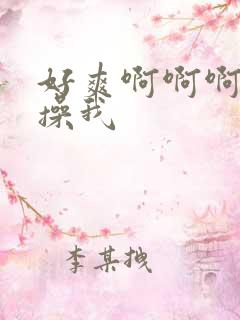 好爽啊啊啊
操我
李某拽